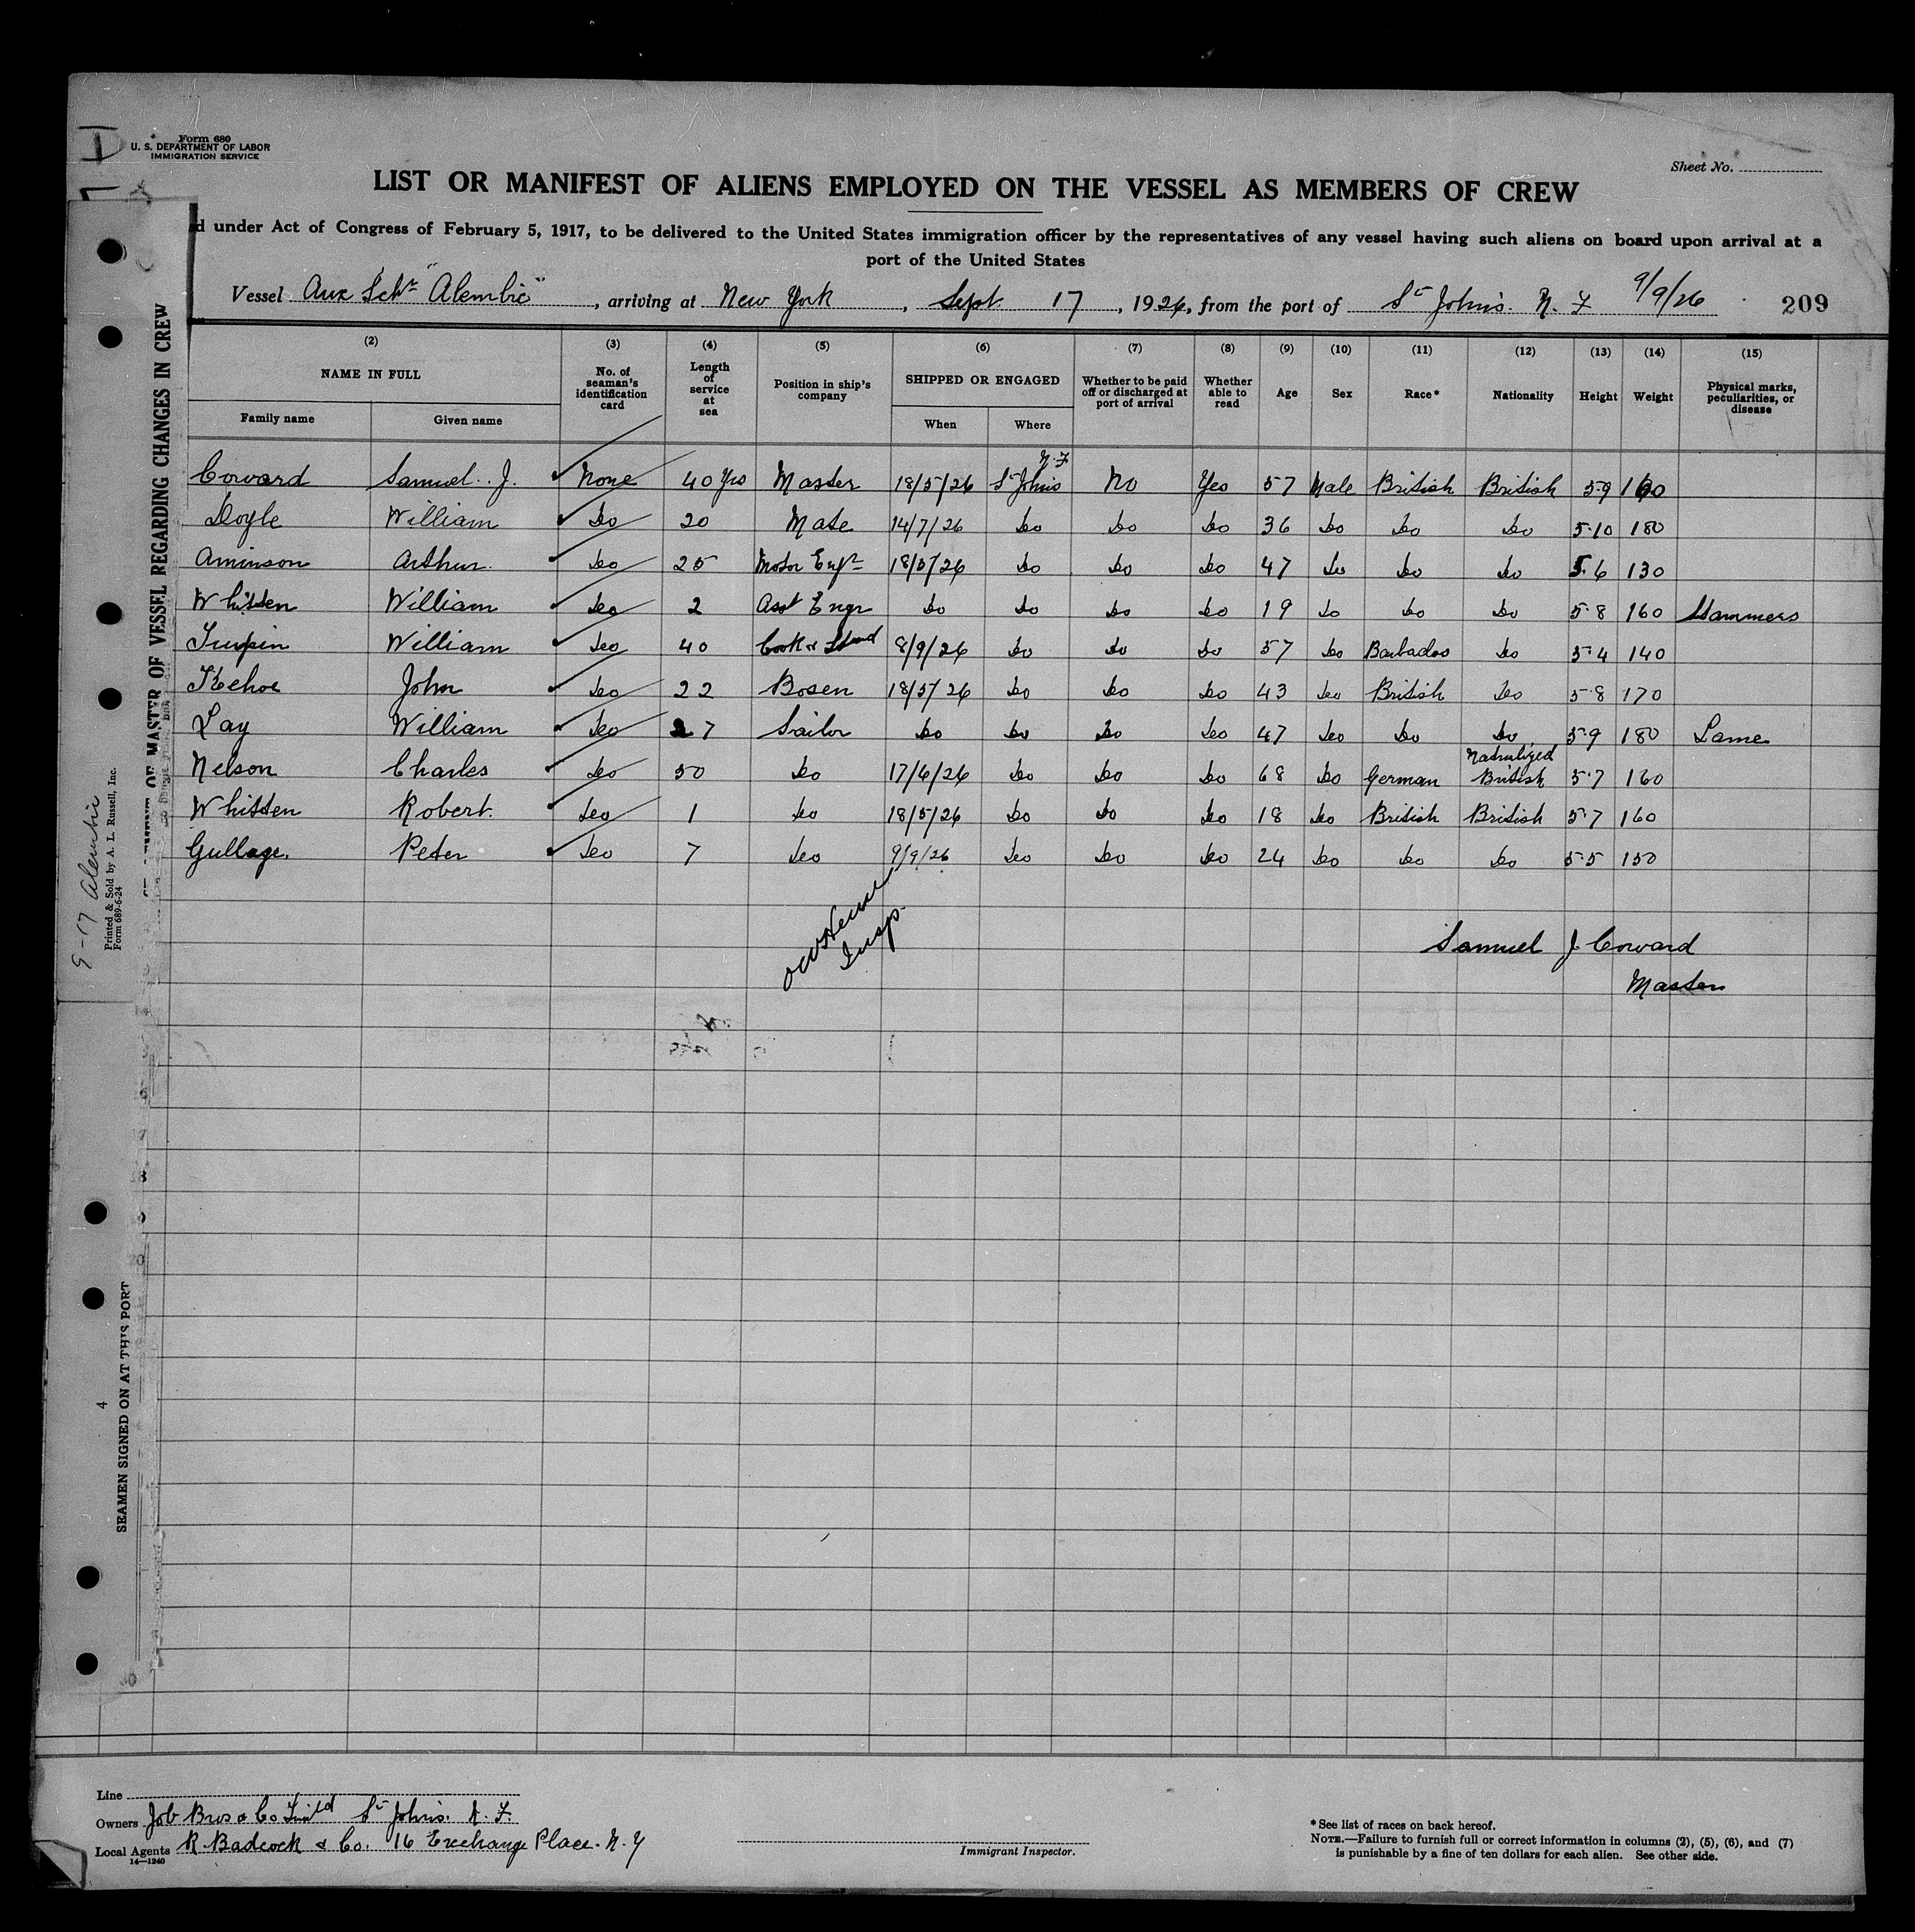 Form 680
U. S. DEPARTMENT OF LABOR
IMMIGRATION SERVICE
Sheet No.
LIST OR MANIFEST OF ALIENS EMPLOYED ON THE VESSEL AS MEMBERS OF CREW
d under Act of Congress of February 5, 1917, to be delivered to the United States immigration officer by the representatives of any vessel having such aliens on board upon arrival at a
port of the United States
Vessel Aux Schr "Alembic", arriving at New York, Sept. 17, 1926, from the port of St Johns. N. F 9/9/26 209
(2) (3) (4) (5) (6) (7) (8) (9) (10) (11) (12) (13) (14) (15)
NAME IN FULL No. of seaman's identification card Length of service at sea Position in ship's company SHIPPED OR ENGAGED Whether to be paid off or discharged at port of arrival Whether able to read Age Sex Race* Nationality Height Weight Physical marks, peculiarities, or disease
Family name Given name When Where
Coward Samuel. J. None 40 Yrs Master 18/5/26 St Johns N.F No Yes 57 Male British British 5-9 160
Doyle William Do 20 Mate 14/7/26 Do Do Do 36 Do Do Do 5-10 180
Aminson Arthur. Do 25 Motor Engr 18/5/26 Do Do Do 47 Do Do Do 5.6 130
Whitten William Do 2 Asst Engr Do Do Do Do 19 Do Do Do 5-8 160 Stammers
Turpin William Do 40 Cook & Stwd 8/9/26 Do Do Do 57 Do Barbados Do 5-4 140
Kehoe John Do 22 Bosen 18/5/26 Do Do Do 43 Do British Do 5-8 170
Lay William Do 27 Sailor Do Do Do Do 47 Do Do Do 5-9 180 Lame
Nelson Charles Do 50 Do 17/6/26 Do Do Do 68 Do German Natrulized British 5-7 160
Whitten Robert. Do 1 Do 18/5/26 Do Do Do 18 Do British British 5-7 160
Gullage. Peter Do 7 Do 9/9/26 Do Do Do 24 Do Do Do 5-5 150
Insp.
Samuel J Coward
Master
OF MASTER OF VESSEL REGARDING CHANGES IN CREW
9-17 Alembic
Printed & Sold by A. L. Russell, Inc.
Form 689-6-24
4
SEAMEN SIGNED ON AT THIS PORT
Line
Owners Job Bros & Co Limtd St Johns. N. F.
Local Agents R. Badcock & Co. 16 Exchange Place. N. Y
14—1240
Immigrant Inspector.
* See list of races on back hereof.
NOTE.—Failure to furnish full or correct information in columns (2), (5), (6), and (7)
is punishable by a fine of ten dollars for each alien. See other side.